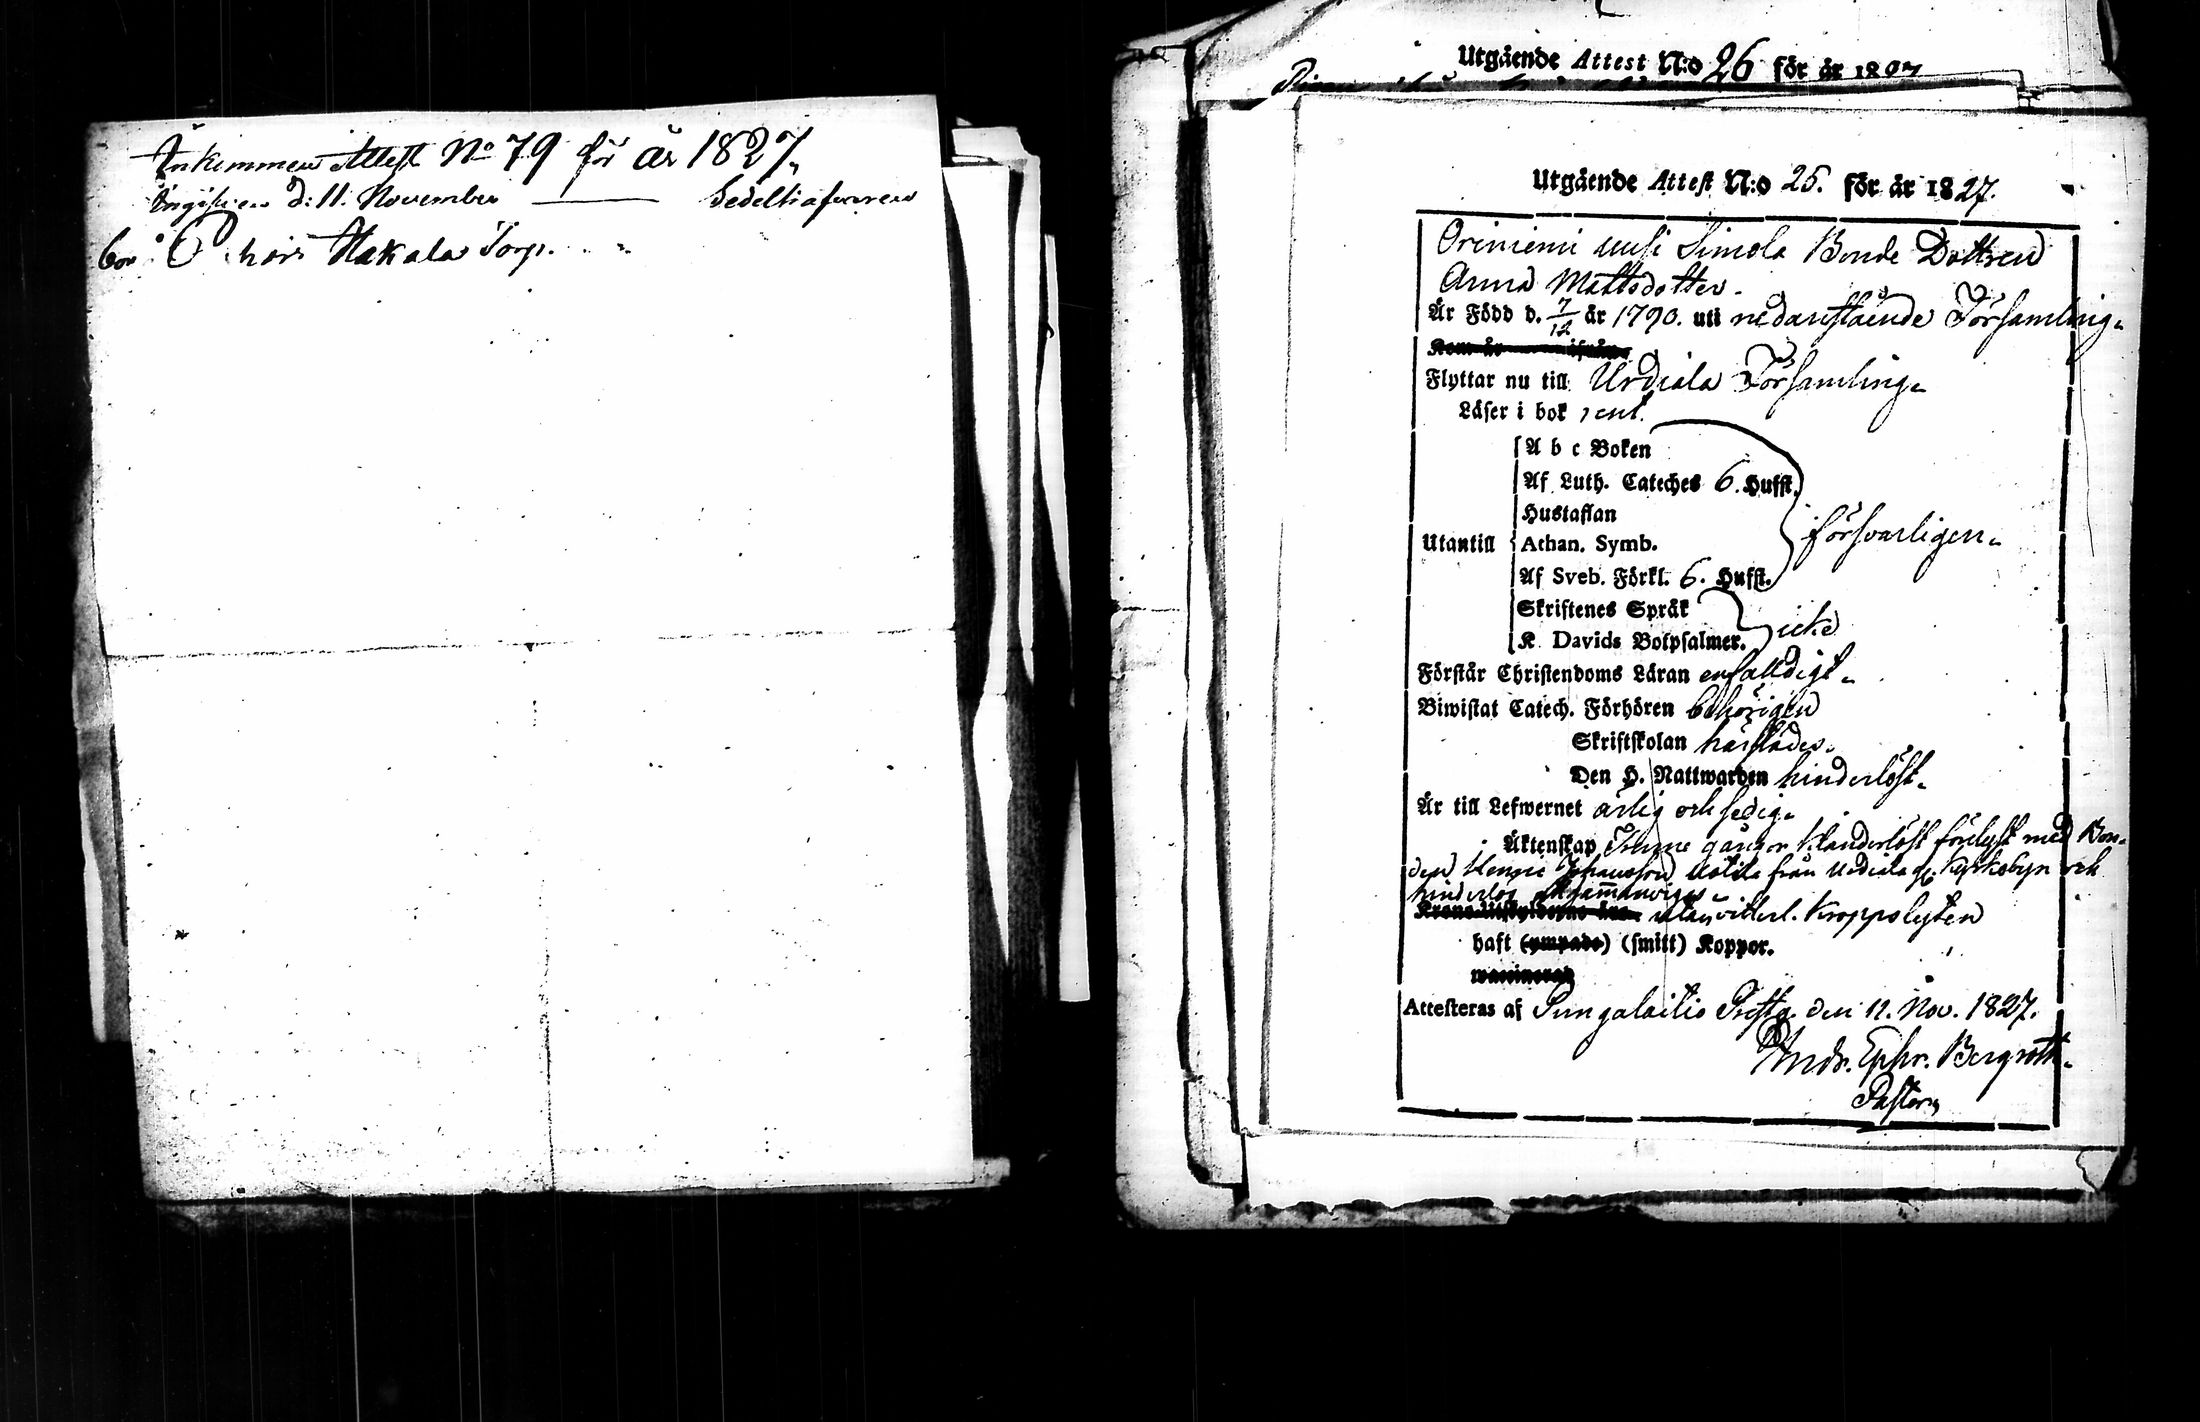 Inkommen Attest No 79 för år 1827,
d: 11. November
Hakala Torp.
Utgående Attest N:o 26 för år 1827
Utgående Attest N:o 25. för år 1827.
Oriniemi uusi Simola Bonde Dottren
Anna Mattsdotter.
Är Född d. 7/12 år 1790. uti nedanstående Församling.
Flyttar nu till Urdiala Församling.
Läser i bok rent.
A b c Boken
Af Luth. Cateches 6. Hufst.
Hustaflan
Utantill Athan. Symb. försvarligen.
Af Sveb. Förkl. 6. Hufst.
Skriftenes Språk
K. Davids Botpsalmer. icke
Förstår Christendoms Läran enfalldigt.
Biwistat Catech. Förhören behörigen
Skriftskolan härstädes.
Den H. Nattwarden hinderlöst.
Är till Lefwernet ärlig och sedig.
Äktenskap Trenne gånger klanderlöst förelyst med Bon-
den Henric Johansson från Urdiala Kyrkobyn och
utan vitterl. Kroppslyten
haft (ympade) (smitt) Koppor.
waccinerad
Attesteras af Pungalaitio Prestg. den 11. Nov. 1827.
Andr. Ephr. Bergroth.
Pastor